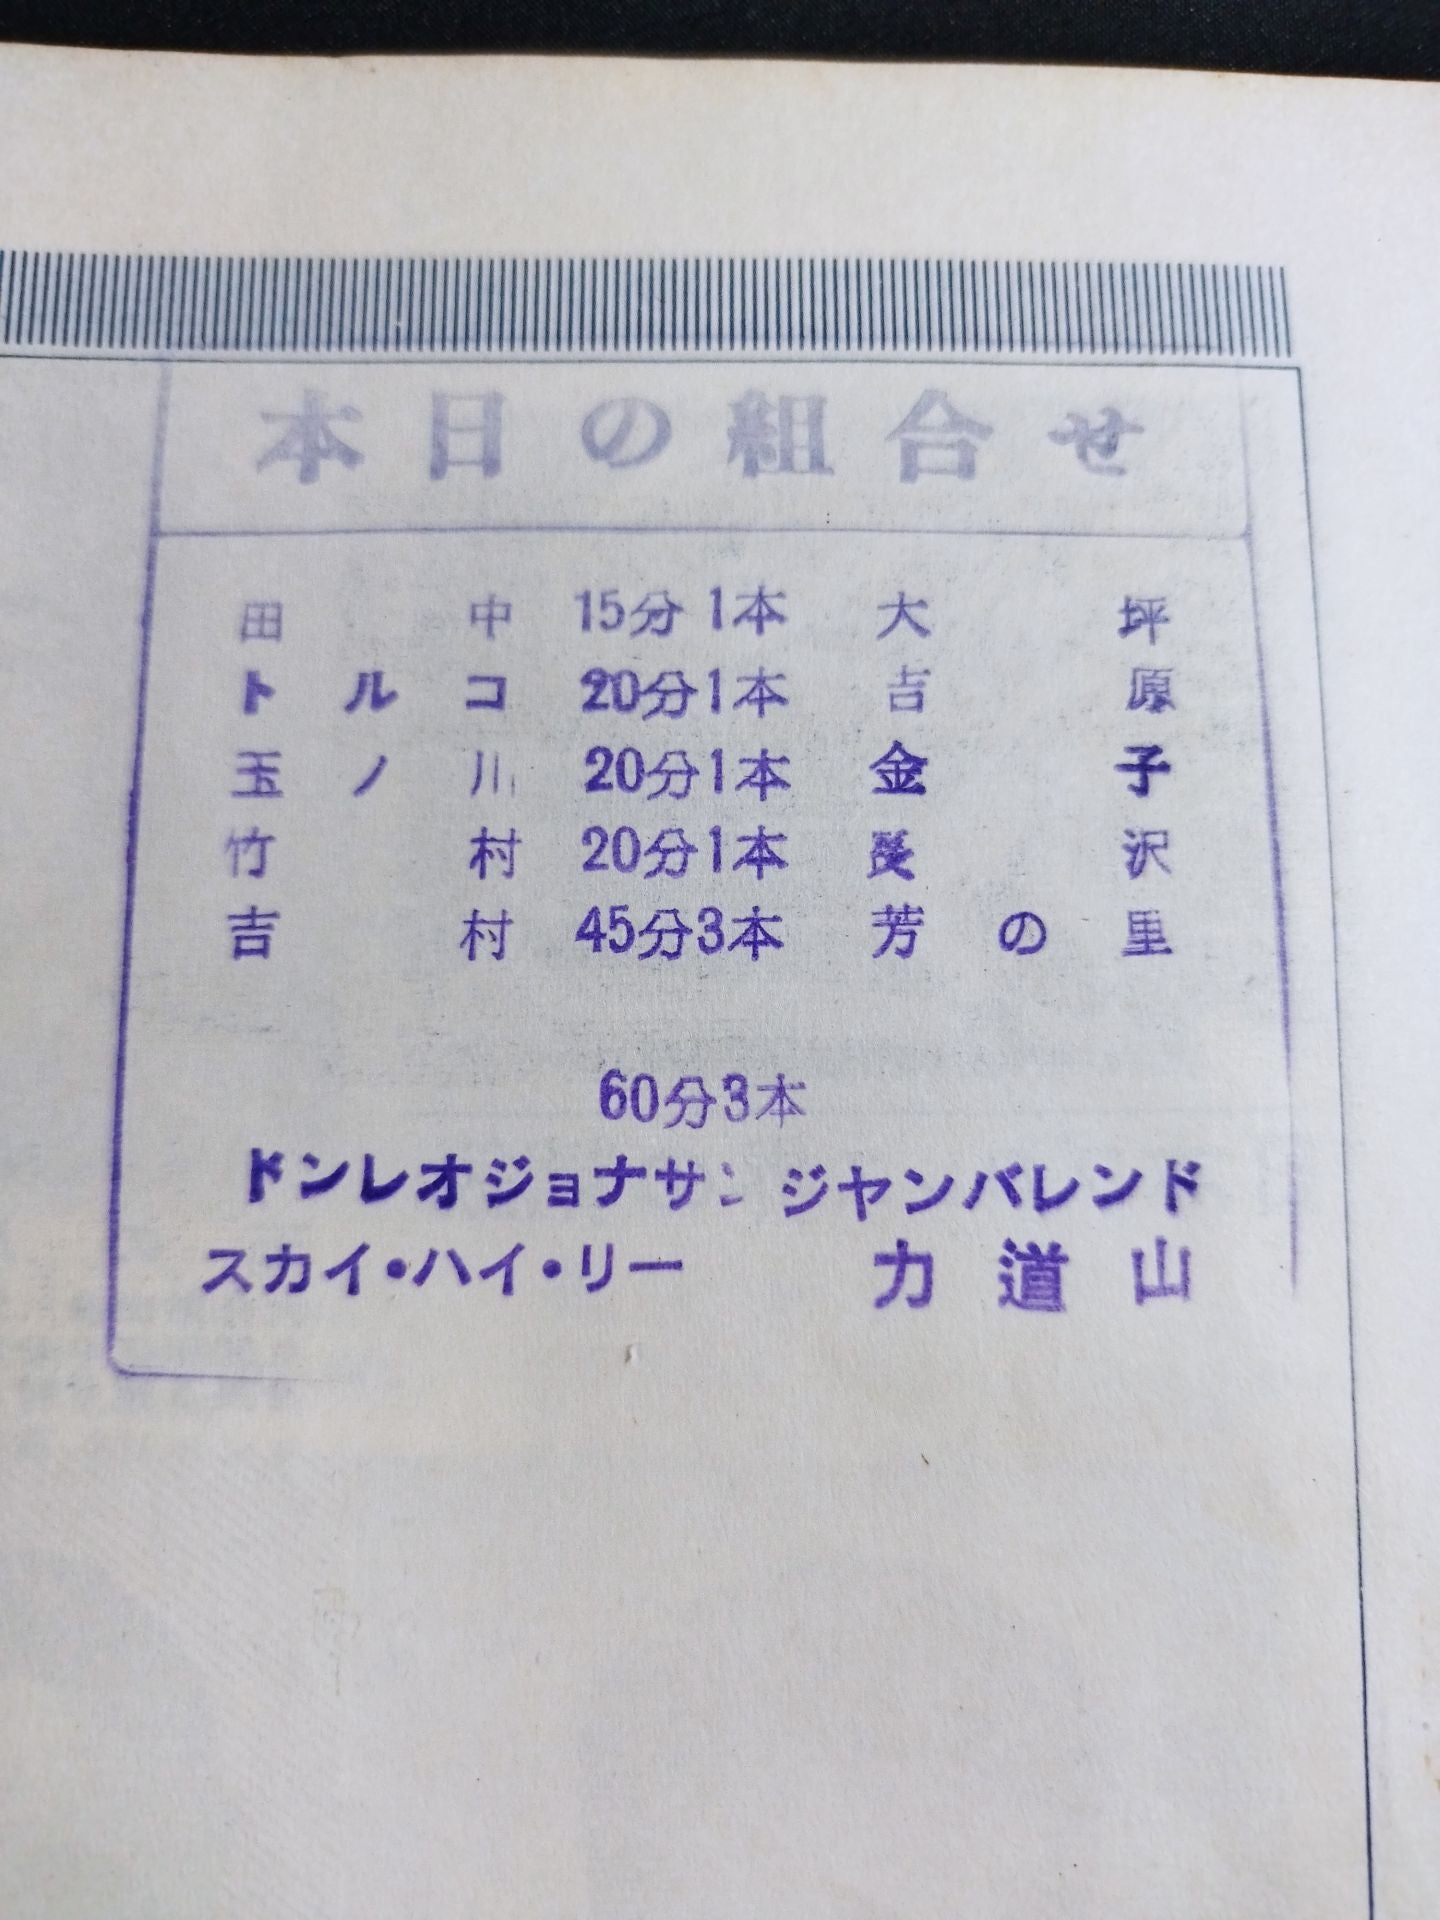 本日の組合せ
田中 15分1本 大坪
トルコ 20分1本 吉原
玉ノ川 20分1本 金子
竹村 20分1本 長沢
吉村 45分3本 芳の里
60分3本
ドンレオジョナサン ジヤンバレンド
スカイ・ハイ・リー 力道山